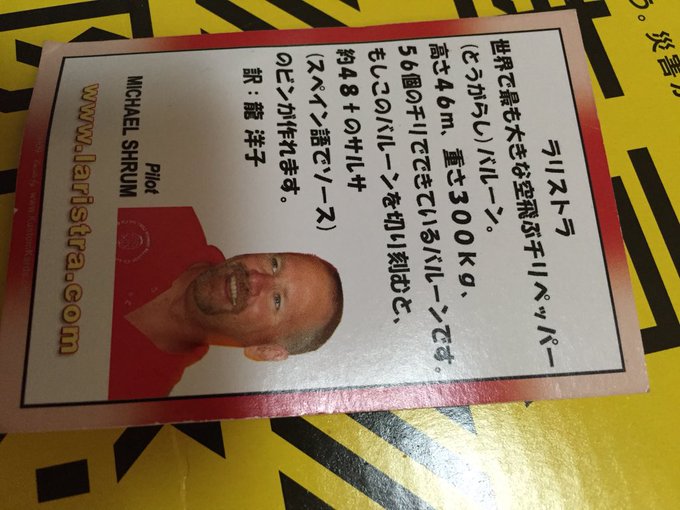 ラリストラ
世界で最も大きな空飛ぶチリペッパー
(とうがらし)バルーン。
高さ46m、重さ300kg、
56個のチリでできているバルーンです。
もしこのバルーンを切り刻むと、
約48tのサルサ
(スペイン語でソース)
のビンが作れます。
訳:龍 洋子
Pilot
MICHAEL SHRUM
www.laristra.com
う。災害が